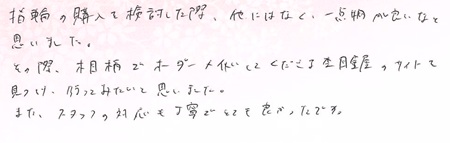 指輪の購入を検討した際、他にはなく、一点物が良いなと
思いました。
その際、木目柄でオーダーメイドしてくださる杢目金屋のサイトを
見つけ、行ってみたいと思いました。
また、スタッフの対応も丁寧でとても良かったです。